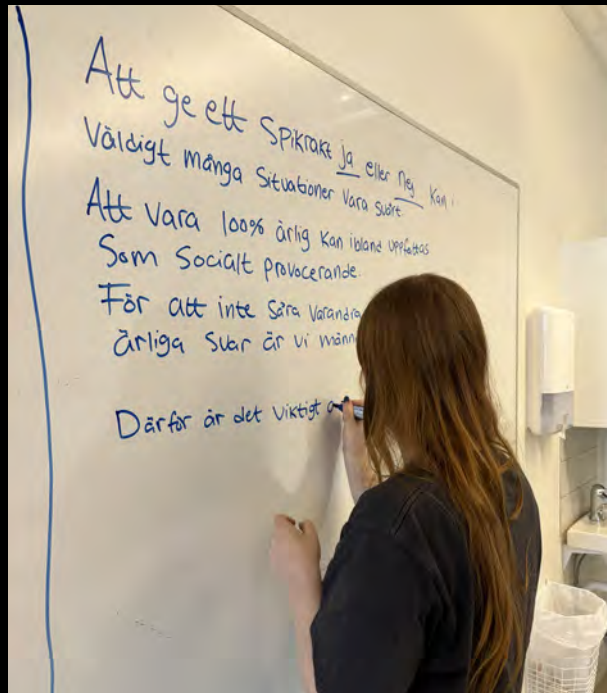 Att ge ett spikrakt ja eller nej kan i
Väldigt många Situationer vara svårt.
Att vara 100% ärlig kan ibland uppfattas
Som Socialt provocerande.
För att inte såra varandra
ärliga svar är vi
Därför är det viktigt